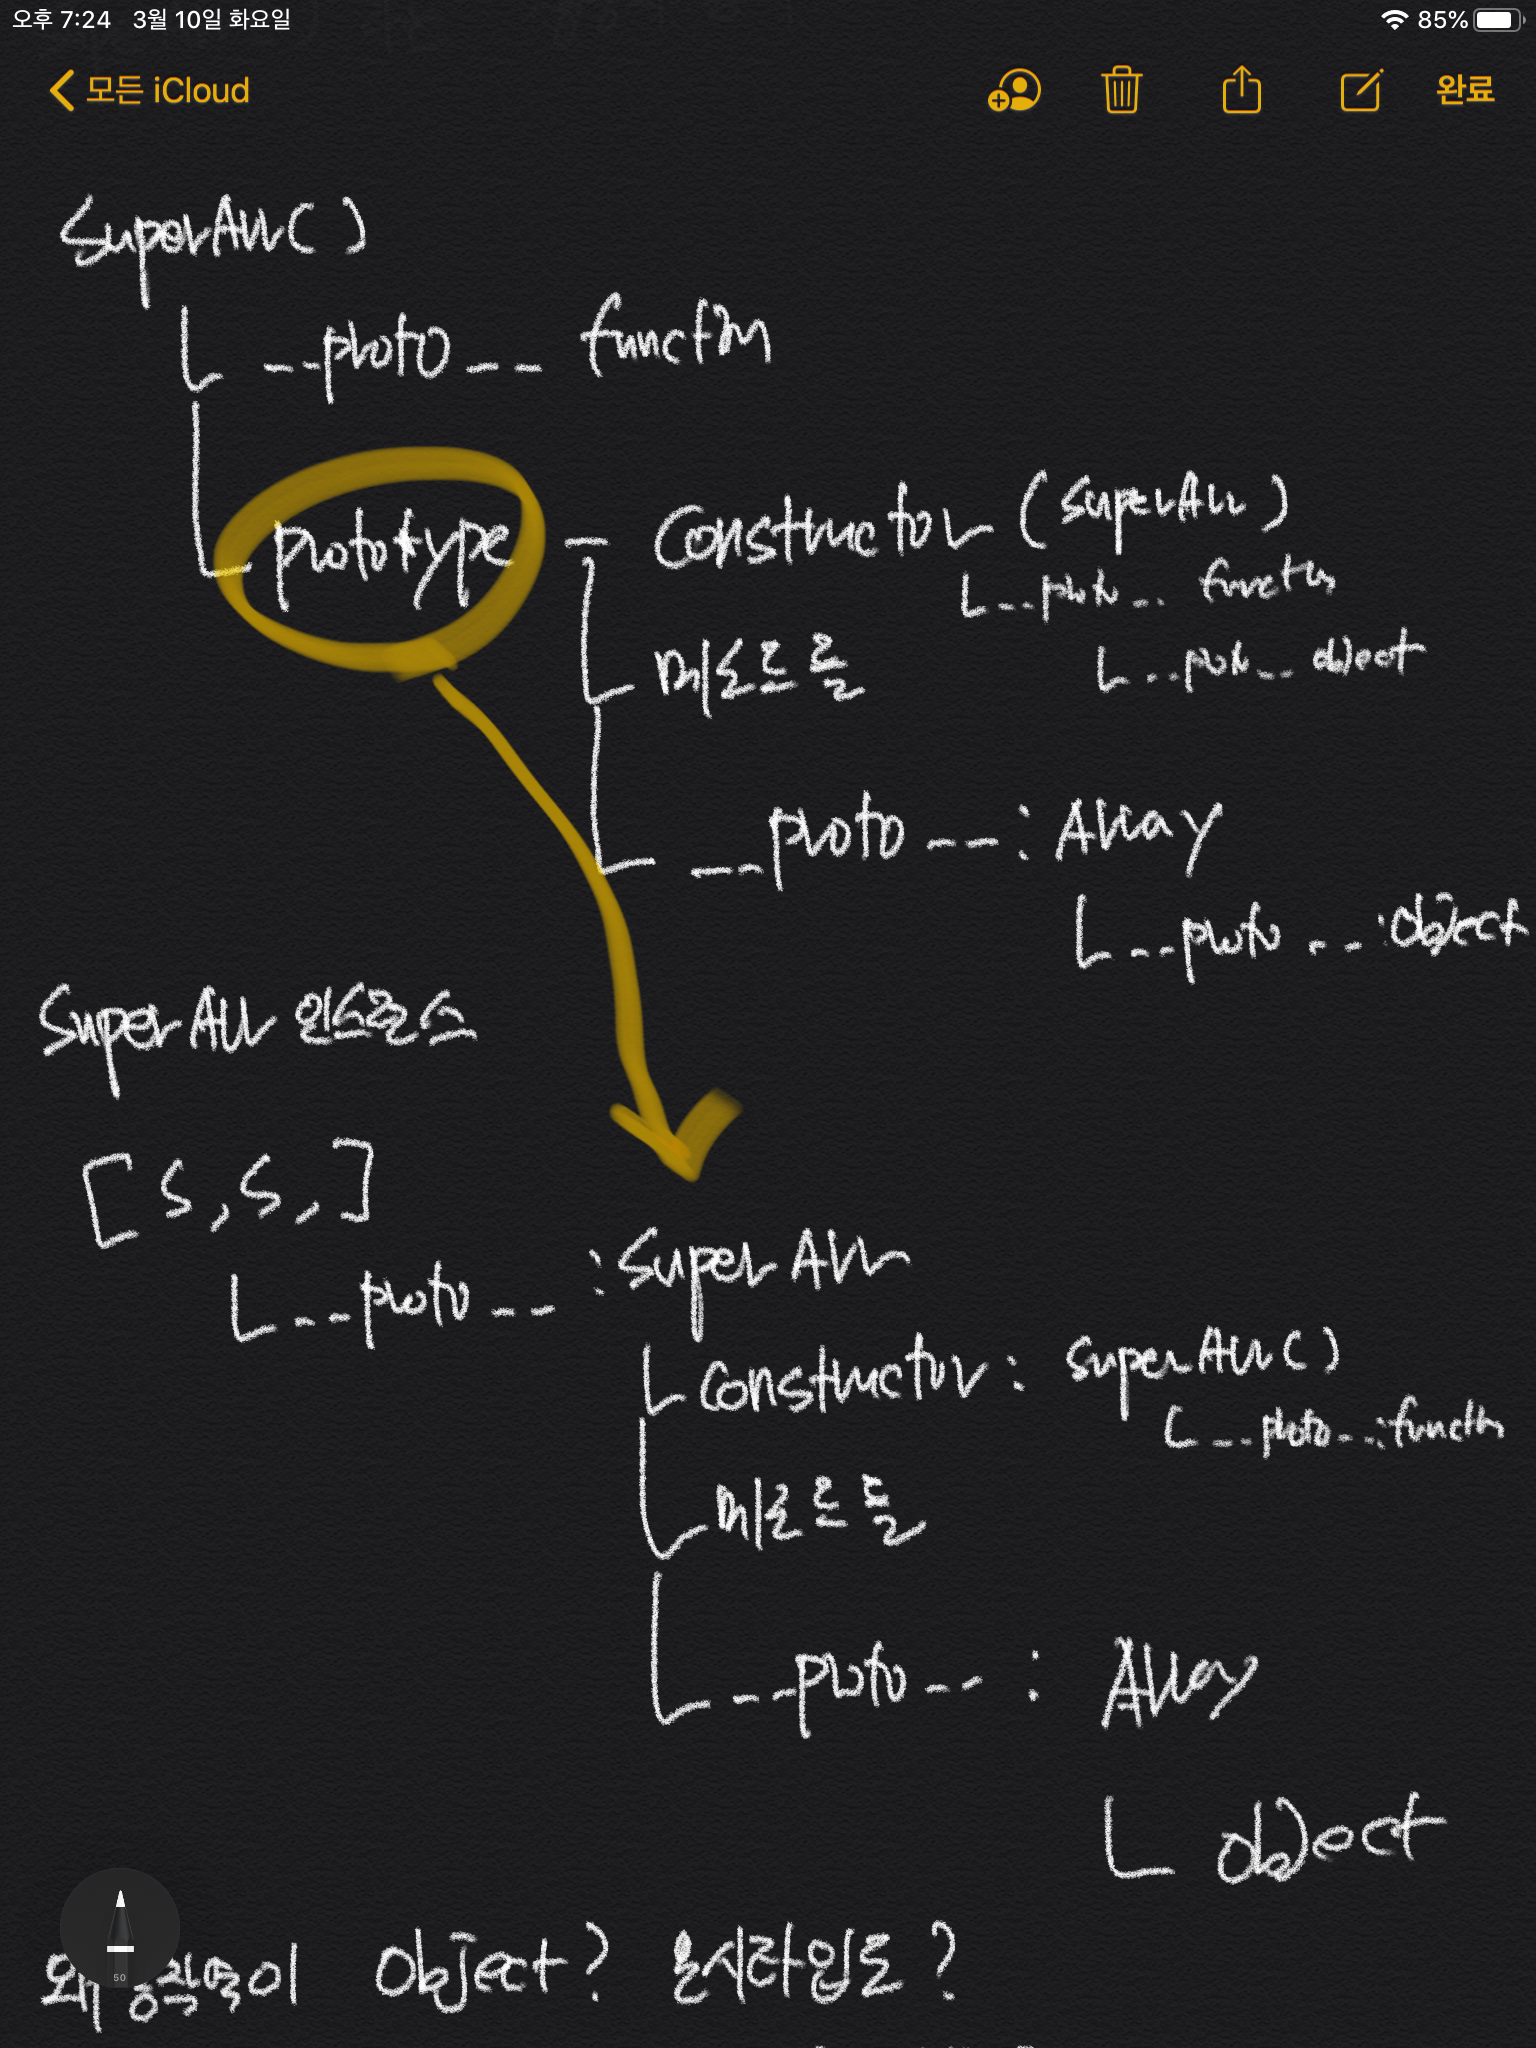 오후 7:24 3월 10일 화요일 85%
모든 iCloud 완료
SuperArr( )
ㄴ __proto__ function
ㄴ prototype - Constructor (SuperArr)
ㄴ __proto__ function
ㄴ 메소드들
ㄴ __proto__ object
ㄴ __proto__ : Array
ㄴ __proto__ : Object
SuperArr 인스턴스
[ S, S, ]
ㄴ __proto__ : SuperArr
ㄴ Constructor : SuperArr( )
ㄴ __proto__ : function
ㄴ 메소드들
ㄴ __proto__ : Array
ㄴ object
50
왜 Object?